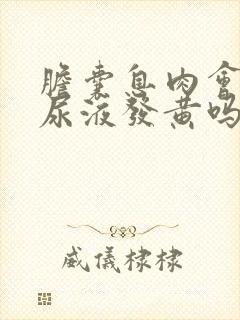 膽囊息肉會
尿液發黃嗎
威儀棣棣